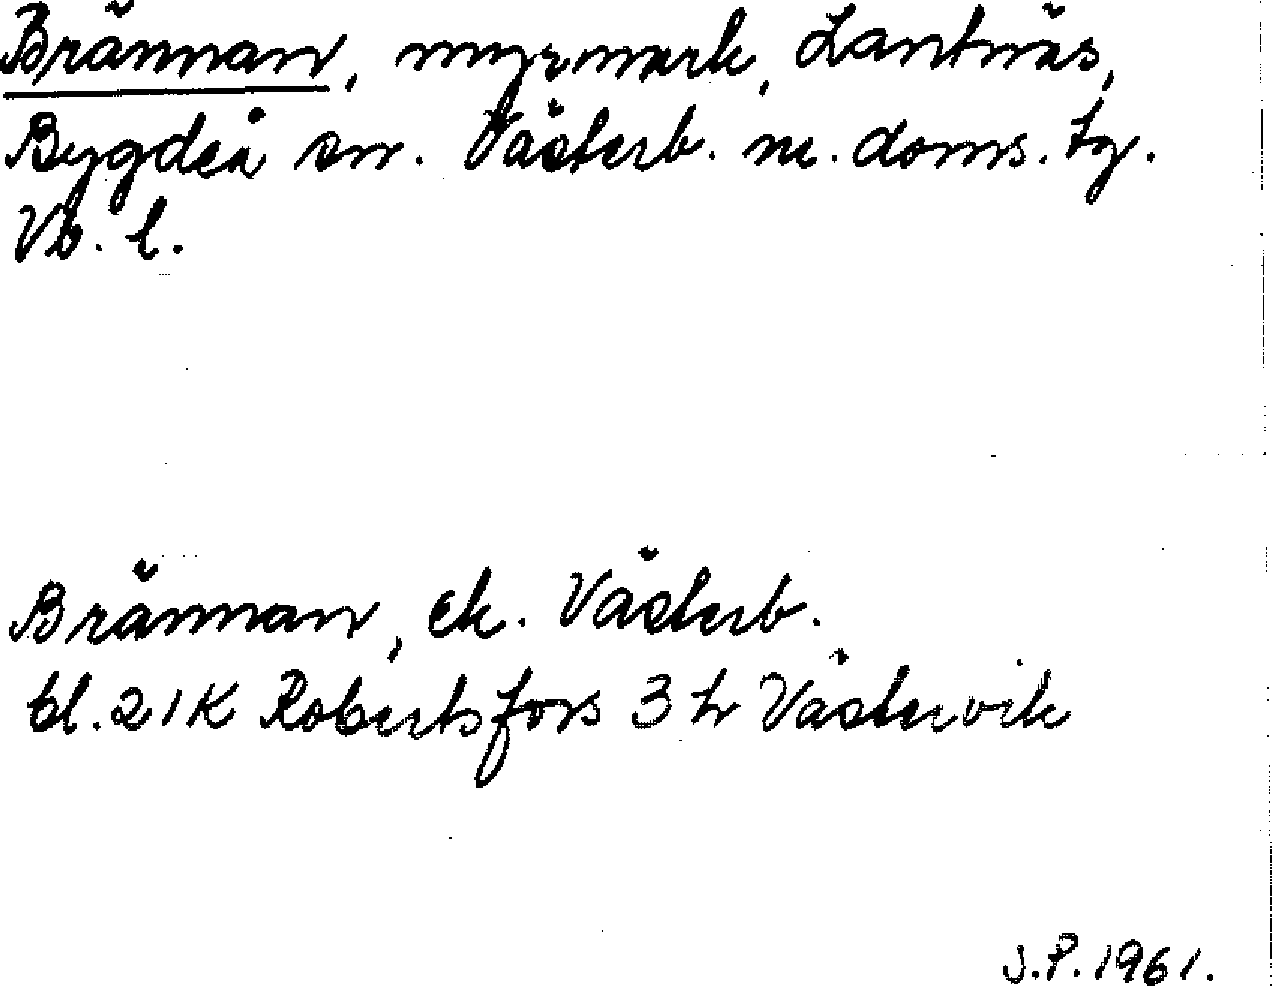 Brännan, myrmark, Lantnäs,
Bygdeå sn. Västerb. ne. doms. tg.
Vb. l.
Brännan, ek. Västerb.
bl. 21K Robertsfors 3 h Västervik
J.P. 1961.